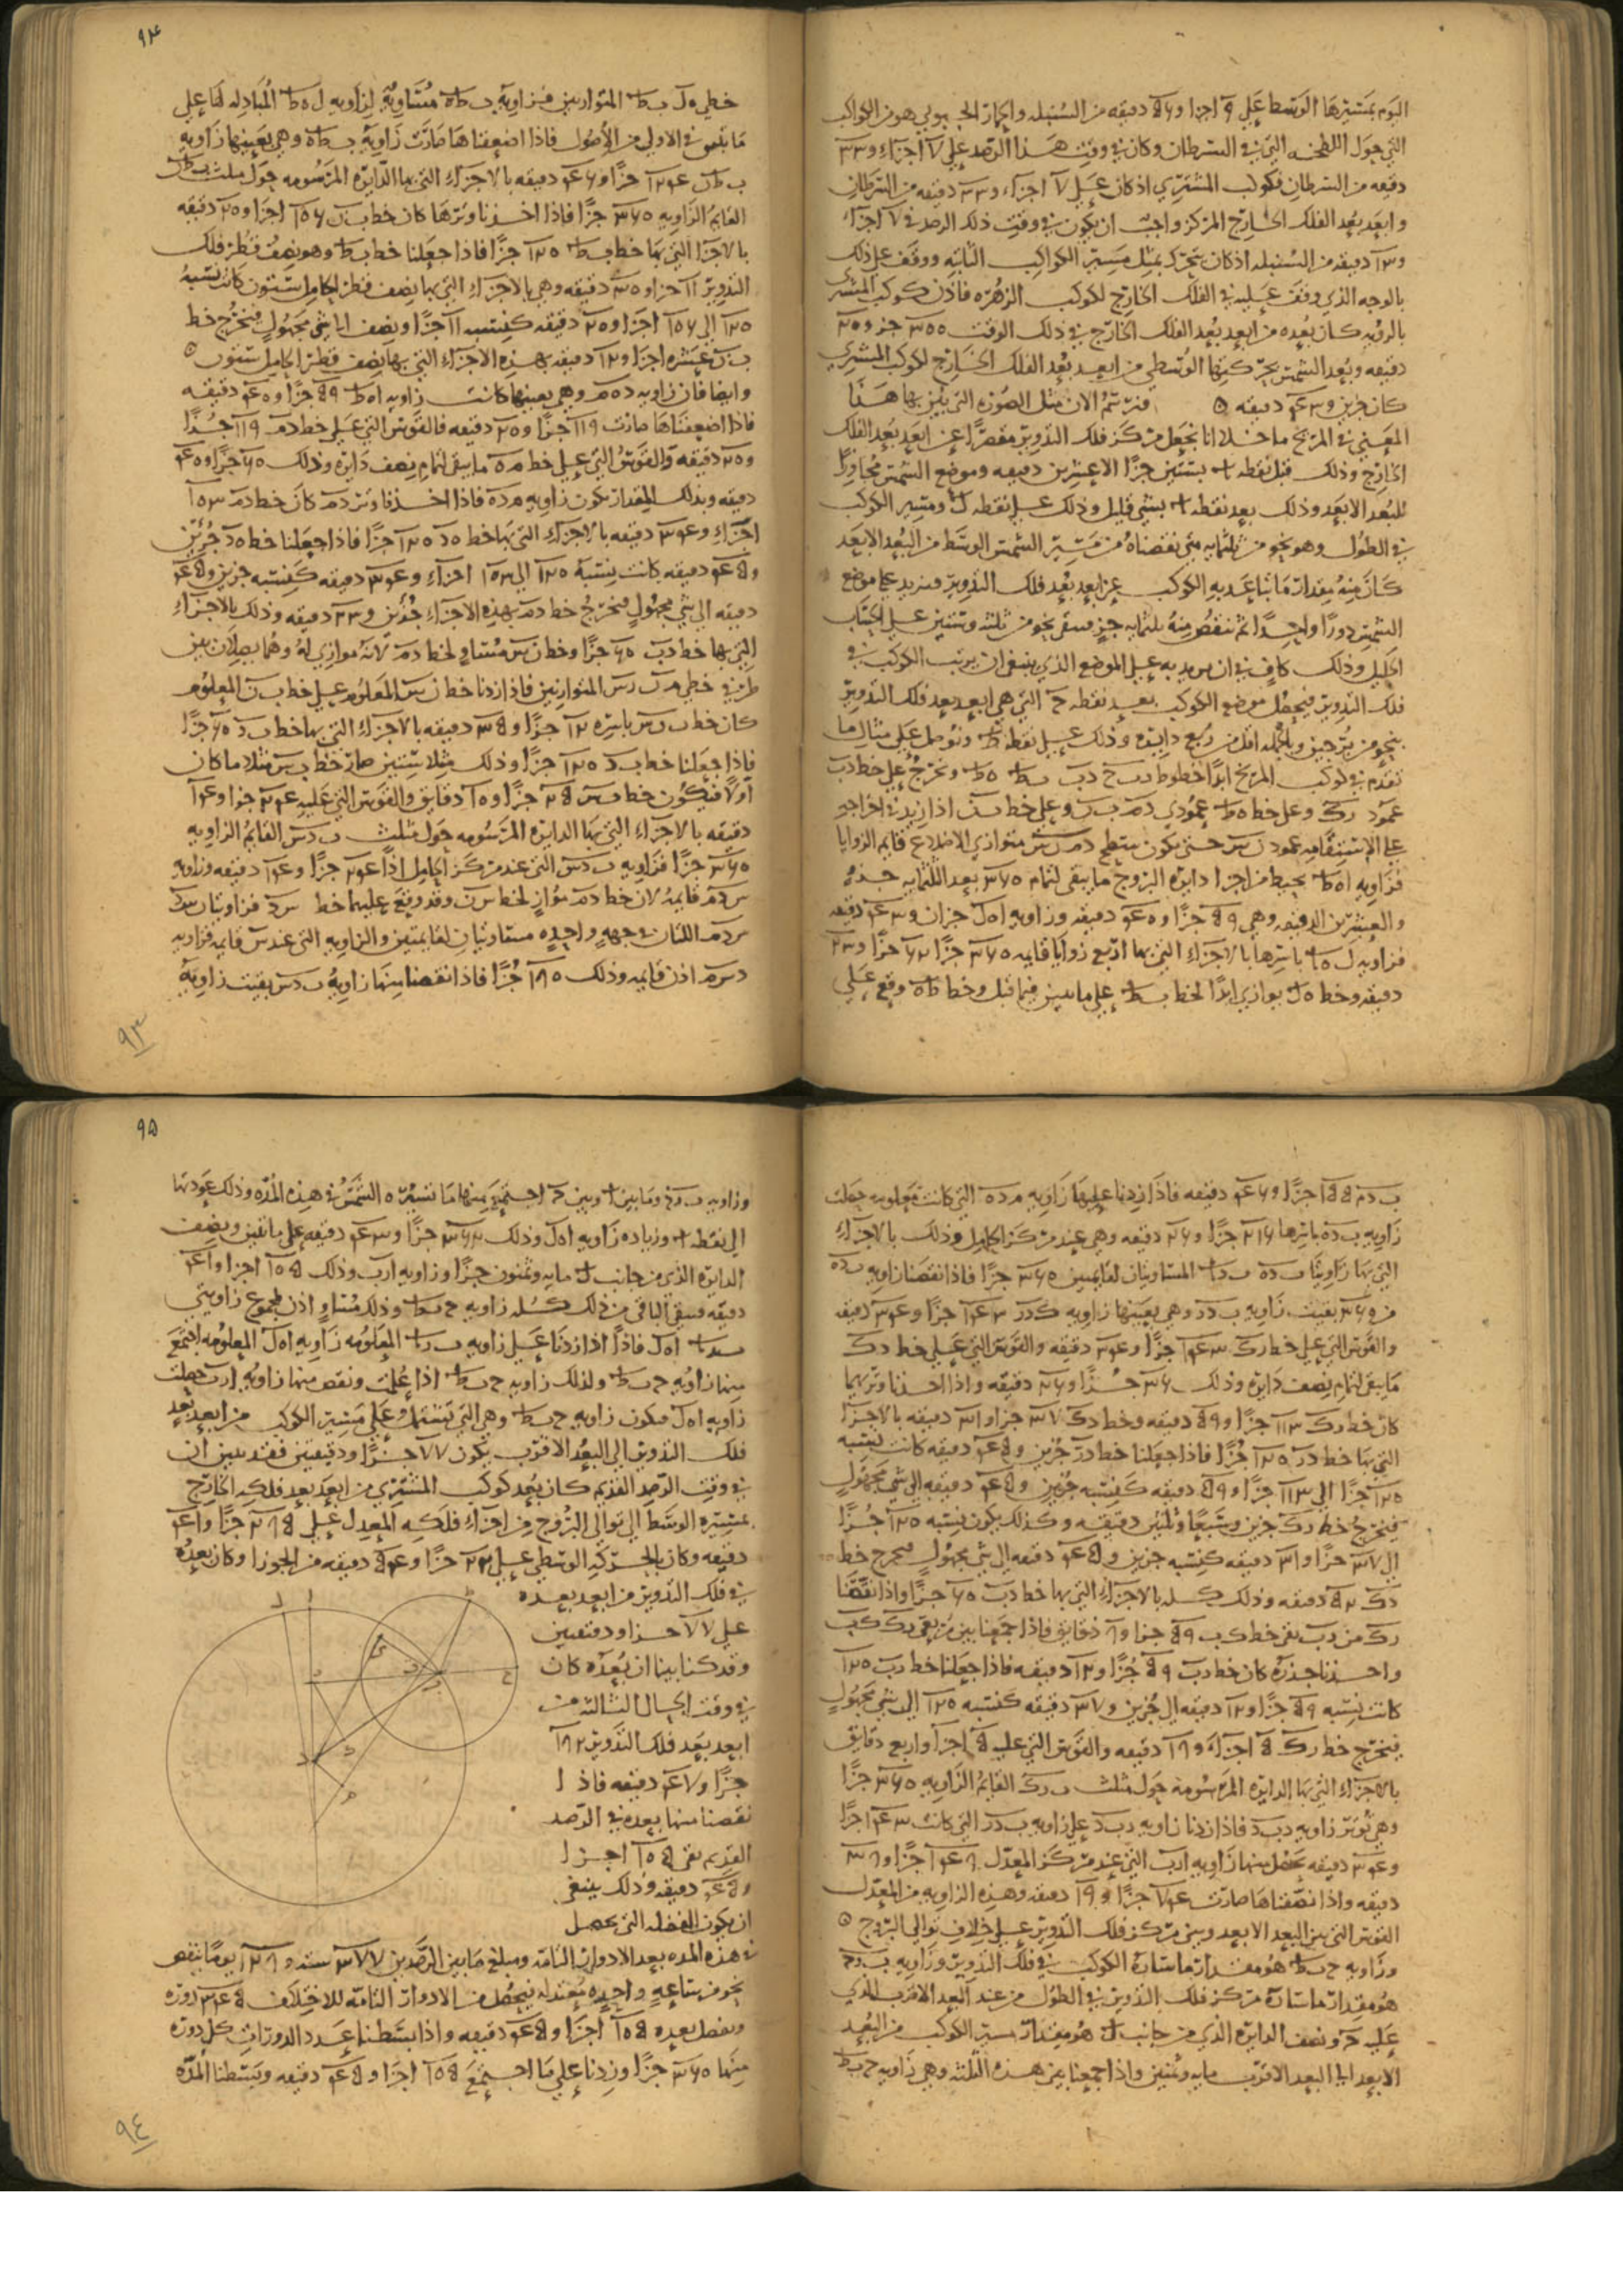 اليوم بمسيرها الوسط علي ٩ اجزا و ٥٦ دقيقه من السنبله والحمار الجنوبي هو من الكواكب
التي حول اللطخه التي في السرطان وكان في وقت هذا الرصد علي ٧ اجزاء و ٣٣
دقيقه من السرطان فكوكب المشتري اذ كان علي ٧ اجزاء و ٣٣ دقيقه من السرطان
وابعد بعد الفلك الخارج المركز واجب ان يكون في وقت ذلك الرصد في ٧ اجزاء
دقيقه من السنبله اذ كان يتحرك بمثل مسير الكواكب الثابته ووقف علي ذلك
بالوجه الذي وقف عليه في الفلك الخارج لكوكب الزهره فاذن كوكب المشتري
بالرؤيه كان بعده من ابعد بعد الفلك الخارج في ذلك الوقت
دقيقه وبعد الشمس بحركتها الوسطي من ابعد بعد الفلك الخارج لكوكب المشتري
كان جزين و ٤٣ دقيقه فنرسم الان مثل الصوره التي تبين بها هذا
المعني في المريخ ما خلا انا نجعل مركز فلك التدوير مقصرا عن ابعد بعد الفلك
الخارج وذلك قبل نقطه بستين جزا الا عشرين دقيقه وموضع الشمس مجاورا
للبعد الابعد وذلك بعد نقطه بشي قليل وذلك علي نقطه ل ومسير الكوكب
في الطول وهو نحو من ثلثمايه متي نقصناه من مسير الشمس الوسط من البعد الابعد
كان منه مقدار ما تباعد به الكوكب عن ابعد بعد فلك التدوير فنزيد علي موضع
الشمس دورا واحدا ثم ننقص منه ثلثمايه جز فيبقي نحو من ثلثه وستين علي الحساب
الجليل وذلك كاف في ان علي الموضع الذي ينبغي ان يرتب الكوكب في
فلك التدوير فيحصل موضع الكوكب بعيد نقطه ح التي هي ابعد بعد فلك التدوير
بنحو من برجين وبالجمله اقل من ربع دايره وذلك علي نقطه ط ونوصل علي مثال ما
تقدم في كوكب المريخ ابدا خطوط د ب ح د ب ب ط ه ط ونخرج علي خط د ب
عمود ر ك وعلي خط ه ط عمودي د م ب ن وعلي خط ب ن اذا زيد في اخراجه
علي الاستقامه عمود ن س حتي يكون سطح متوازي الاضلاع قايم الزوايا
فزاويه ا ه ط يحيط من اجزا دايره البروج ما يبقي لتمام ٣٦٠ بعد الثلثمايه جزء
والعشرين الدقيقه وهي ٥٩ جزا و ٤٠ دقيقه وزاويه ا ه ل جزان و ٤٣ دقيقه
فزاويه ل ه ط باسرها بالاجزاء التي بها اربع زوايا قايمه ٣٦٠ جزا ٦٢ جزا و ٢٣
دقيقه وخط ه ل يوازي ابدا لخط ب ط علي ما تبين فيما قبل وخط ط ه وقع علي
٩٤
خطي ه ل ب ط المتوازيين فزاويه ب ط ه مساويه لزاويه ل ه ط المبادله لها علي
ما بين في الاولي من الاصول فاذا اضعفناها صارت زاويه ب ط ه وهي بعينها زاويه
ب ط ن ١٢٤ جزا و ٤٦ دقيقه بالاجزاء التي بها الدايره المرسومه حول مثلث ب ط ن
القايم الزاويه ٣٦٠ جزا فاذا اخذنا وترها كان خط ب ن ١٠٦ اجزا و ٢٠ دقيقه
بالاجزا التي بها خط ب ط ١٢٠ جزا فاذا جعلنا خط ب ط وهو نصف قطر فلك
التدوير ١١ جزا و ٣٠ دقيقه وهي بالاجزاء التي بها نصف قطر الحامل ستون كانت نسبه
١٢٠ الي ١٠٦ اجزا و ٢٠ دقيقه كنسبه ١١ جزا ونصف الي شي مجهول فيخرج خط
ب ن عشره اجزا و ١٢ دقيقه بهذه الاجزاء التي بها نصف قطر الحامل ستون
وايضا فان زاويه د ه م وهي بعينها كانت زاويه ا ه ط ٥٩ جزا و ٤٠ دقيقه
فاذا اضعفناها صارت ١١٩ جزا و ٢٠ دقيقه فالقوس التي علي خط د م ١١٩ جزا
و ٢٠ دقيقه والقوس التي علي خط م ه ما يبقي لتمام نصف دايره وذلك ٦٠ جزا و ٤٠
دقيقه وبذلك المقدار تكون زاويه م د ه فاذا اخذنا وتر د م كان خط د م ١٠٣
اجزاء و ٣٤ دقيقه بالاجزاء التي بها خط ه د ١٢٠ جزا فاذا جعلنا خط ه د جزين
و ٤٥ دقيقه كانت نسبه ١٢٠ الي ١٠٣ اجزاء و ٣٤ دقيقه كنسبه جزين و ٤٥
دقيقه الي شي مجهول فيخرج خط د م بهذه الاجزاء جزين و ٢٣ دقيقه وذلك بالاجزاء
التي بها خط د ب ٦٠ جزا وخط ن س مساو لخط د م لانه موازي له وهما يصلان بين
طرفي خطي المتوازيين فاذا زدنا خط ن س المعلوم علي خط ب ن المعلوم
كان خط ب س باسره ١٢ جزا و ٣٥ دقيقه بالاجزاء التي بها خط ب د ٦٠ جزا
فاذا جعلنا خط ب د ١٢٠ جزا وذلك مثلا ستين صار خط ب س مثلا ما كان
اولا فيكون خط ب س ٢٥ جزا و ١٠ دقايق والقوس التي عليه ٢٤ جزا و ١٤
دقيقه بالاجزاء التي بها الدايره المرسومه حول مثلث ب د س القايم الزاويه
٣٦٠ جزا فزاويه ب د س التي عند مركز الحامل اذا ٢٤ جزا و ١٤ دقيقه وزاويه
س د م قايمه لان خط د م مواز لخط س ن وقد وقع عليهما خط س د فزاويتان
س د م اللتان في جهه واحده مساويتان لقايمتين والزاويه التي عند س قايمه فزاويه
د س م اذن قايمه وذلك ١٨٠ جزا فاذا نقصنا منها زاويه ب د س بقيت زاويه
٩٣
ب د م ١٥٥ جزا و ٤٦ دقيقه فاذا زدنا عليها زاويه م د ه التي كانت معلومه جعلت
زاويه ب د ه باسرها ٢١٦ جزا و ٢٦ دقيقه وهي عند مركز الحامل وذلك بالاجزاء
التي بها زاويتا ب د ه المساويتان لقايمتين ٣٦٠ جزا فاذا نقصنا زاويه ب د ه
من ٣٦٠ بقيت زاويه ب د ر وهي بعينها زاويه ك د ر ١٤٣ جزا و ٣٤ دقيقه
والقوس التي علي خط ر ك ١٤٣ جزا و ٣٤ دقيقه والقوس التي علي خط د ك
ما يبقي لتمام نصف دايره وذلك ٣٦ جزا و ٢٦ دقيقه واذا اخذنا وتريهما
كان خط ر ك ١١٣ جزا و ٥٩ دقيقه وخط د ك ٣٧ جزا و ٣١ دقيقه بالاجزا
التي بها خط د ر ١٢٠ جزا فاذا جعلنا خط د ر جزين و ٤٥ دقيقه كانت نسبه
١٢٠ جزا الي ١١٣ جزا و ٥٩ دقيقه كنسبه جزين و ٤٥ دقيقه الي شي مجهول
فيخرج خط ر ك جزين وسبعا وثلثين دقيقه وكذلك يكون نسبه ١٢٠ جزا
الي ٣٧ جزا و ٣١ دقيقه كنسبه جزين و ٤٥ دقيقه الي شي مجهول فيخرج خط
د ك ٥٢ دقيقه وذلك كله بالاجزاء التي بها خط د ب ٦٠ جزا واذا نقصنا
د ك من د ب بقي خط ك ب ٥٩ جزا و ٨ دقايق فاذا جمعنا بين مربعي ر ك ك ب
واخذنا جذره كان خط ر ب ٥٩ جزا و ١٢ دقيقه فاذا جعلنا خط ر ب ١٢٠
كانت نسبه ٥٩ جزا و ١٢ دقيقه الي جزين و ٣٧ دقيقه كنسبه ١٢٠ الي شي مجهول
فيخرج خط ر ك ٥ اجزاء و ١٨ دقيقه والقوس التي عليه ٥ اجزا واربع دقايق
بالاجزاء التي بها الدايره المرسومه حول مثلث ب ر ك القايم الزاويه ٣٦٠ جزا
وهي توتر زاويه ر ب د فاذا زدنا زاويه ر ب د علي زاويه ب د ر التي كانت ١٤٣ جزا
و ٣٤ دقيقه يحصل منها زاويه ا ر ب التي عند مركز المعدل ١٤٨ جزا و ٣٨
دقيقه واذا نصفناها صارت ٧٤ جزا و ١٩ دقيقه وهذه الزاويه من المعدل
القوس التي بين البعد الابعد وبين مركز فلك التدوير علي خلاف توالي البروج
وزاويه ح ب ط هو مقدار ما ساره الكوكب في فلك التدوير وزاويه
هو مقدار ما ساره مركز فلك التدوير في الطول من عند البعد الاقرب الذي
عليه ح ونصف الدايره الذي من جانب ل هو مقدار مسير الكوكب من البعد
الابعد الي البعد الاقرب مايه وثمنين واذا جمعنا بين هذه الثلثه وهي زاويه ح ب ط
٩٥
وزاويه وما بين ا وبين اجتمع منها ما تسيره الشمس في هذه المده وذلك عودتها
الي نقطه وزياده زاويه ا ه ل وذلك ٣٦٢ جزا و ٤٣ دقيقه علي ما تبين ونصف
الدايره الذي من جانب ل مايه وثمنون جزا وزاويه ا ر ب وذلك ١٠٥ اجزا و ٤١
دقيقه فيبقي الباقي من ذلك كله زاويه ح ب ط وذلك مساو اذن لمجموع زاويتي
ا ه ل فاذا اذا زدنا علي زاويه المعلومه زاويه ا ه ل المعلومه اجتمع
منها زاويه ح ب ط ولذلك زاويه ح ب ط اذا علمت ونقص منها زاويه ا ر ب حصلت
زاويه ا ه ل فيكون زاويه ح ب ط وهي التي تشتمل علي مسير الكوكب من ابعد بعد
فلك التدوير الي البعد الاقرب يكون ٧٧ جزا ودقيقتين فقد تبين ان
في وقت الرصد القديم كان بعد كوكب المشتري من ابعد بعد فلكه الخارج
بمسيره الوسط الي توالي البروج من اجزاء فلكه المعدل علي ٢٨٥ جزا و ٤١
دقيقه وكان بالحركه الوسطي علي ٢٢ جزا و ٥٤ دقيقه من الجوزا وكان بعده
في فلك التدوير من ابعد بعده
علي ٧٧ جزا ودقيقتين
وقد كنا بينا ان بعده كان
في وقت الحال الثالثه من
ابعد بعد فلك التدوير ١٨٢
جزا و ٤٧ دقيقه فاذا
نقصنا منها بعده في الرصد
القديم بقي ١٠٥ اجزا
و ٤٥ دقيقه وذلك ينبغي
ان يكون الفضله التي تحصل
في هذه المده بعد الادوار التامه ومبلغ ما بين الرصدين ٣٧٧ سنه و ١٢٨ يوما ينقص
نحو من ساعه واحده معتدله فيحصل من الادوار التامه للاختلاف ٣٤٥ دوره
ويفضل بعده ١٠٥ اجزا و ٤٥ دقيقه واذا بسطنا عدد الدورات كل دوره
منها ٣٦٠ جزا وزدنا علي ما اجتمع ١٠٥ اجزا و ٤٥ دقيقه وبسطنا المده
٩٤